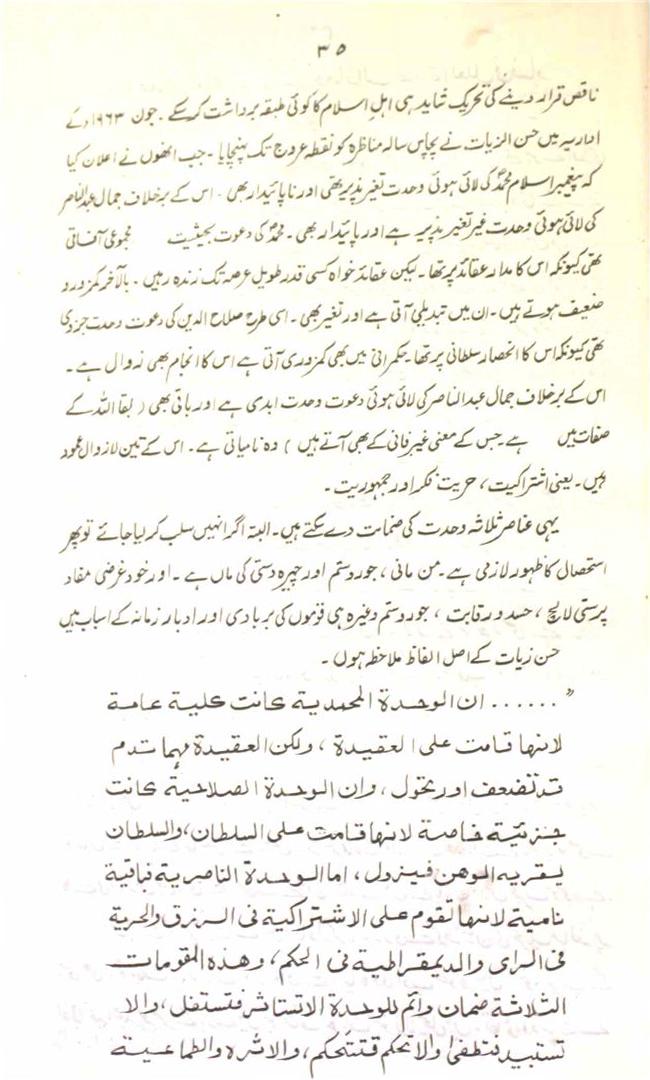 ۳۵
ناقص قرار دینے کی تحریک شاید ہی اہلِ اسلام کا کوئی طبقہ برداشت کر سکے۔ جون ۱۹۶۳ء کے
اداریہ میں حسن الزیات نے پچاس سالہ مناظرہ کو نقطہ عروج تک پہنچایا۔ جب انھوں نے اعلان کیا
کہ پیغمبر اسلام محمدؐ کی لائی ہوئی وحدت تغیر پذیر تھی اور ناپائیدار بھی۔ اس کے برخلاف جمال عبدالناصر
کی لائی ہوئی وحدت غیر تغیر پذیر ہے اور پائیدار بھی۔ محمدؐ کی دعوت بحیثیت مجموعی آفاقی
تھی کیونکہ اس کا مدار عقائد پر تھا۔ لیکن عقائد خواہ کسی قدر طویل عرصہ تک زندہ رہیں۔ بالآخر کمزور و
ضعیف ہوتے ہیں۔ ان میں تبدیلی آتی ہے اور تغیر بھی۔ اسی طرح صلاح الدین کی دعوت وحدت جزوی
تھی کیونکہ اس کا انحصار سلطانی پر تھا۔ حکمرانی میں بھی کمزوری آتی ہے اس کا انجام بھی زوال ہے۔
اس کے برخلاف جمال عبدالناصر کی لائی ہوئی دعوت وحدت ابدی ہے اور باقی بھی (بقا اللہ کے
صفات میں ہے جس کے معنی غیر فانی کے بھی آتے ہیں) وہ نامیاتی ہے۔ اس کے تین لازوال عمود
ہیں۔ یعنی اشتراکیت، حریت فکر اور جمہوریت۔
یہی عناصر ثلاثہ وحدت کی ضمانت دے سکتے ہیں۔ البتہ اگر انہیں سلب کر لیا جائے تو پھر
استحصال کا ظہور لازمی ہے۔ من مانی، جور و ستم اور چیرہ دستی کی ماں ہے۔ اور خود غرضی مفاد
پرستی لالچ، حسد و رقابت، جور و ستم وغیرہ ہی قوموں کی بربادی اور ادبار زمانہ کے اسباب ہیں
حسن زیات کے اصل الفاظ ملاحظہ ہوں۔
"...... ان الوحدة المحمدية كانت كلية عامة
لانها قامت على العقيدة، ولكن العقيدة مهما تدم
قد تضعف او تحول، وان الوحدة الصلاحية كانت
جزئية خاصة لانها قامت على السلطان، والسلطان
يعتريه الوهن فيزول، اما الوحدة الناصرية فباقية
نامية لانها تقوم على الاشتراكية فى الرزق والحرية
فى الراى والديمقراطية فى الحكم، وهذه المقومات
الثلاثة ضمان دائم للوحدة الا تستاثر فتستغل، والا
تستبيد فتطغى والا تحكم فتتحكم، والاثره والطماعية